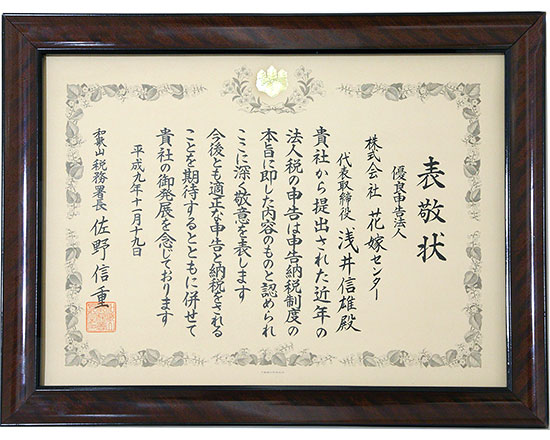 表敬状
優良申告法人
株式会社 花嫁センター
代表取締役 浅井信雄殿
貴社から提出された近年の
法人税の申告は申告納税制度の
本旨に即した内容のものと認められ
ここに深く敬意を表します
今後とも適正な申告と納税をされる
ことを期待するとともに併せて
貴社の御発展を念じております
平成九年十一月十九日
和歌山税務署長 佐野信重